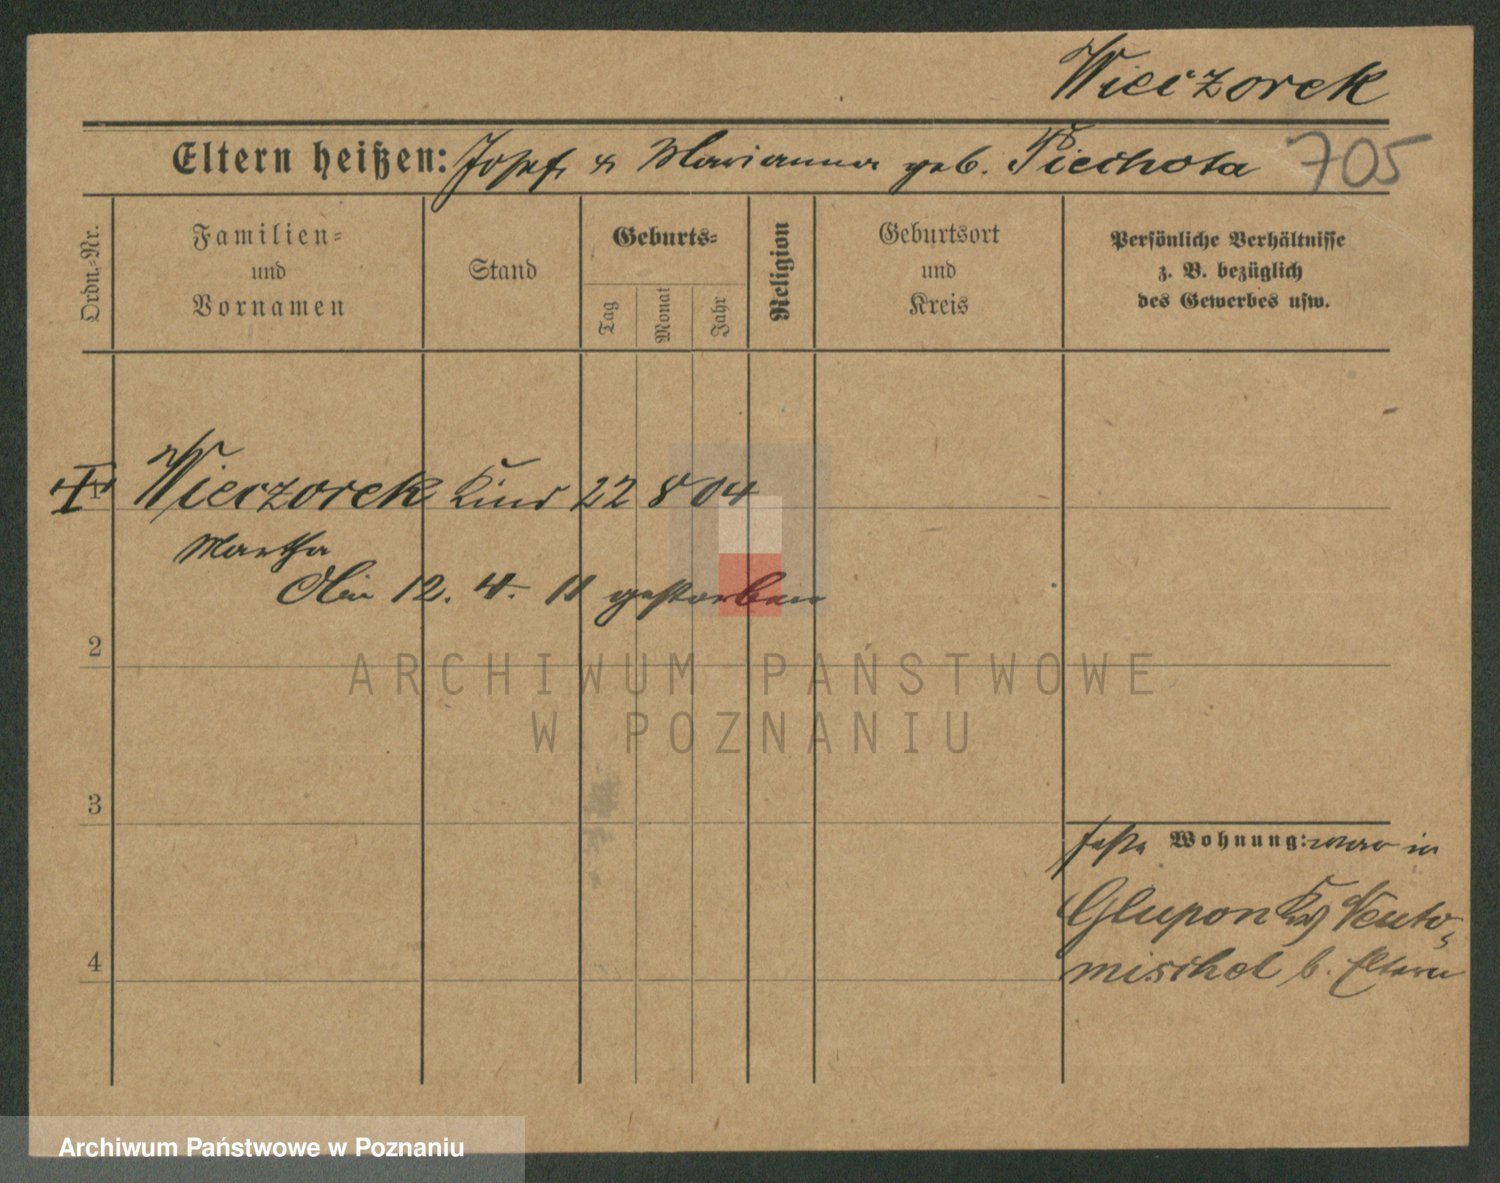 Wieczorek
Eltern heißen: Josef u Marianna geb. Piechota 705
Ordn.-Nr.
Familien- und Vornamen
Stand
Geburts-
Tag
Monat
Jahr
Religion
Geburtsort und Kreis
Persönliche Verhältnisse
z. B. bezüglich
des Gewerbes usw.
Wieczorek Kind 22 8 04
Martha
12. 4. 11 gestorben
2
ARCHIWUM PAŃSTWOWE
W POZNANIU
3
Wohnung: in
Glupon Kr Neuto-
mischel b. Eltern
4
Archiwum Państwowe w Poznaniu